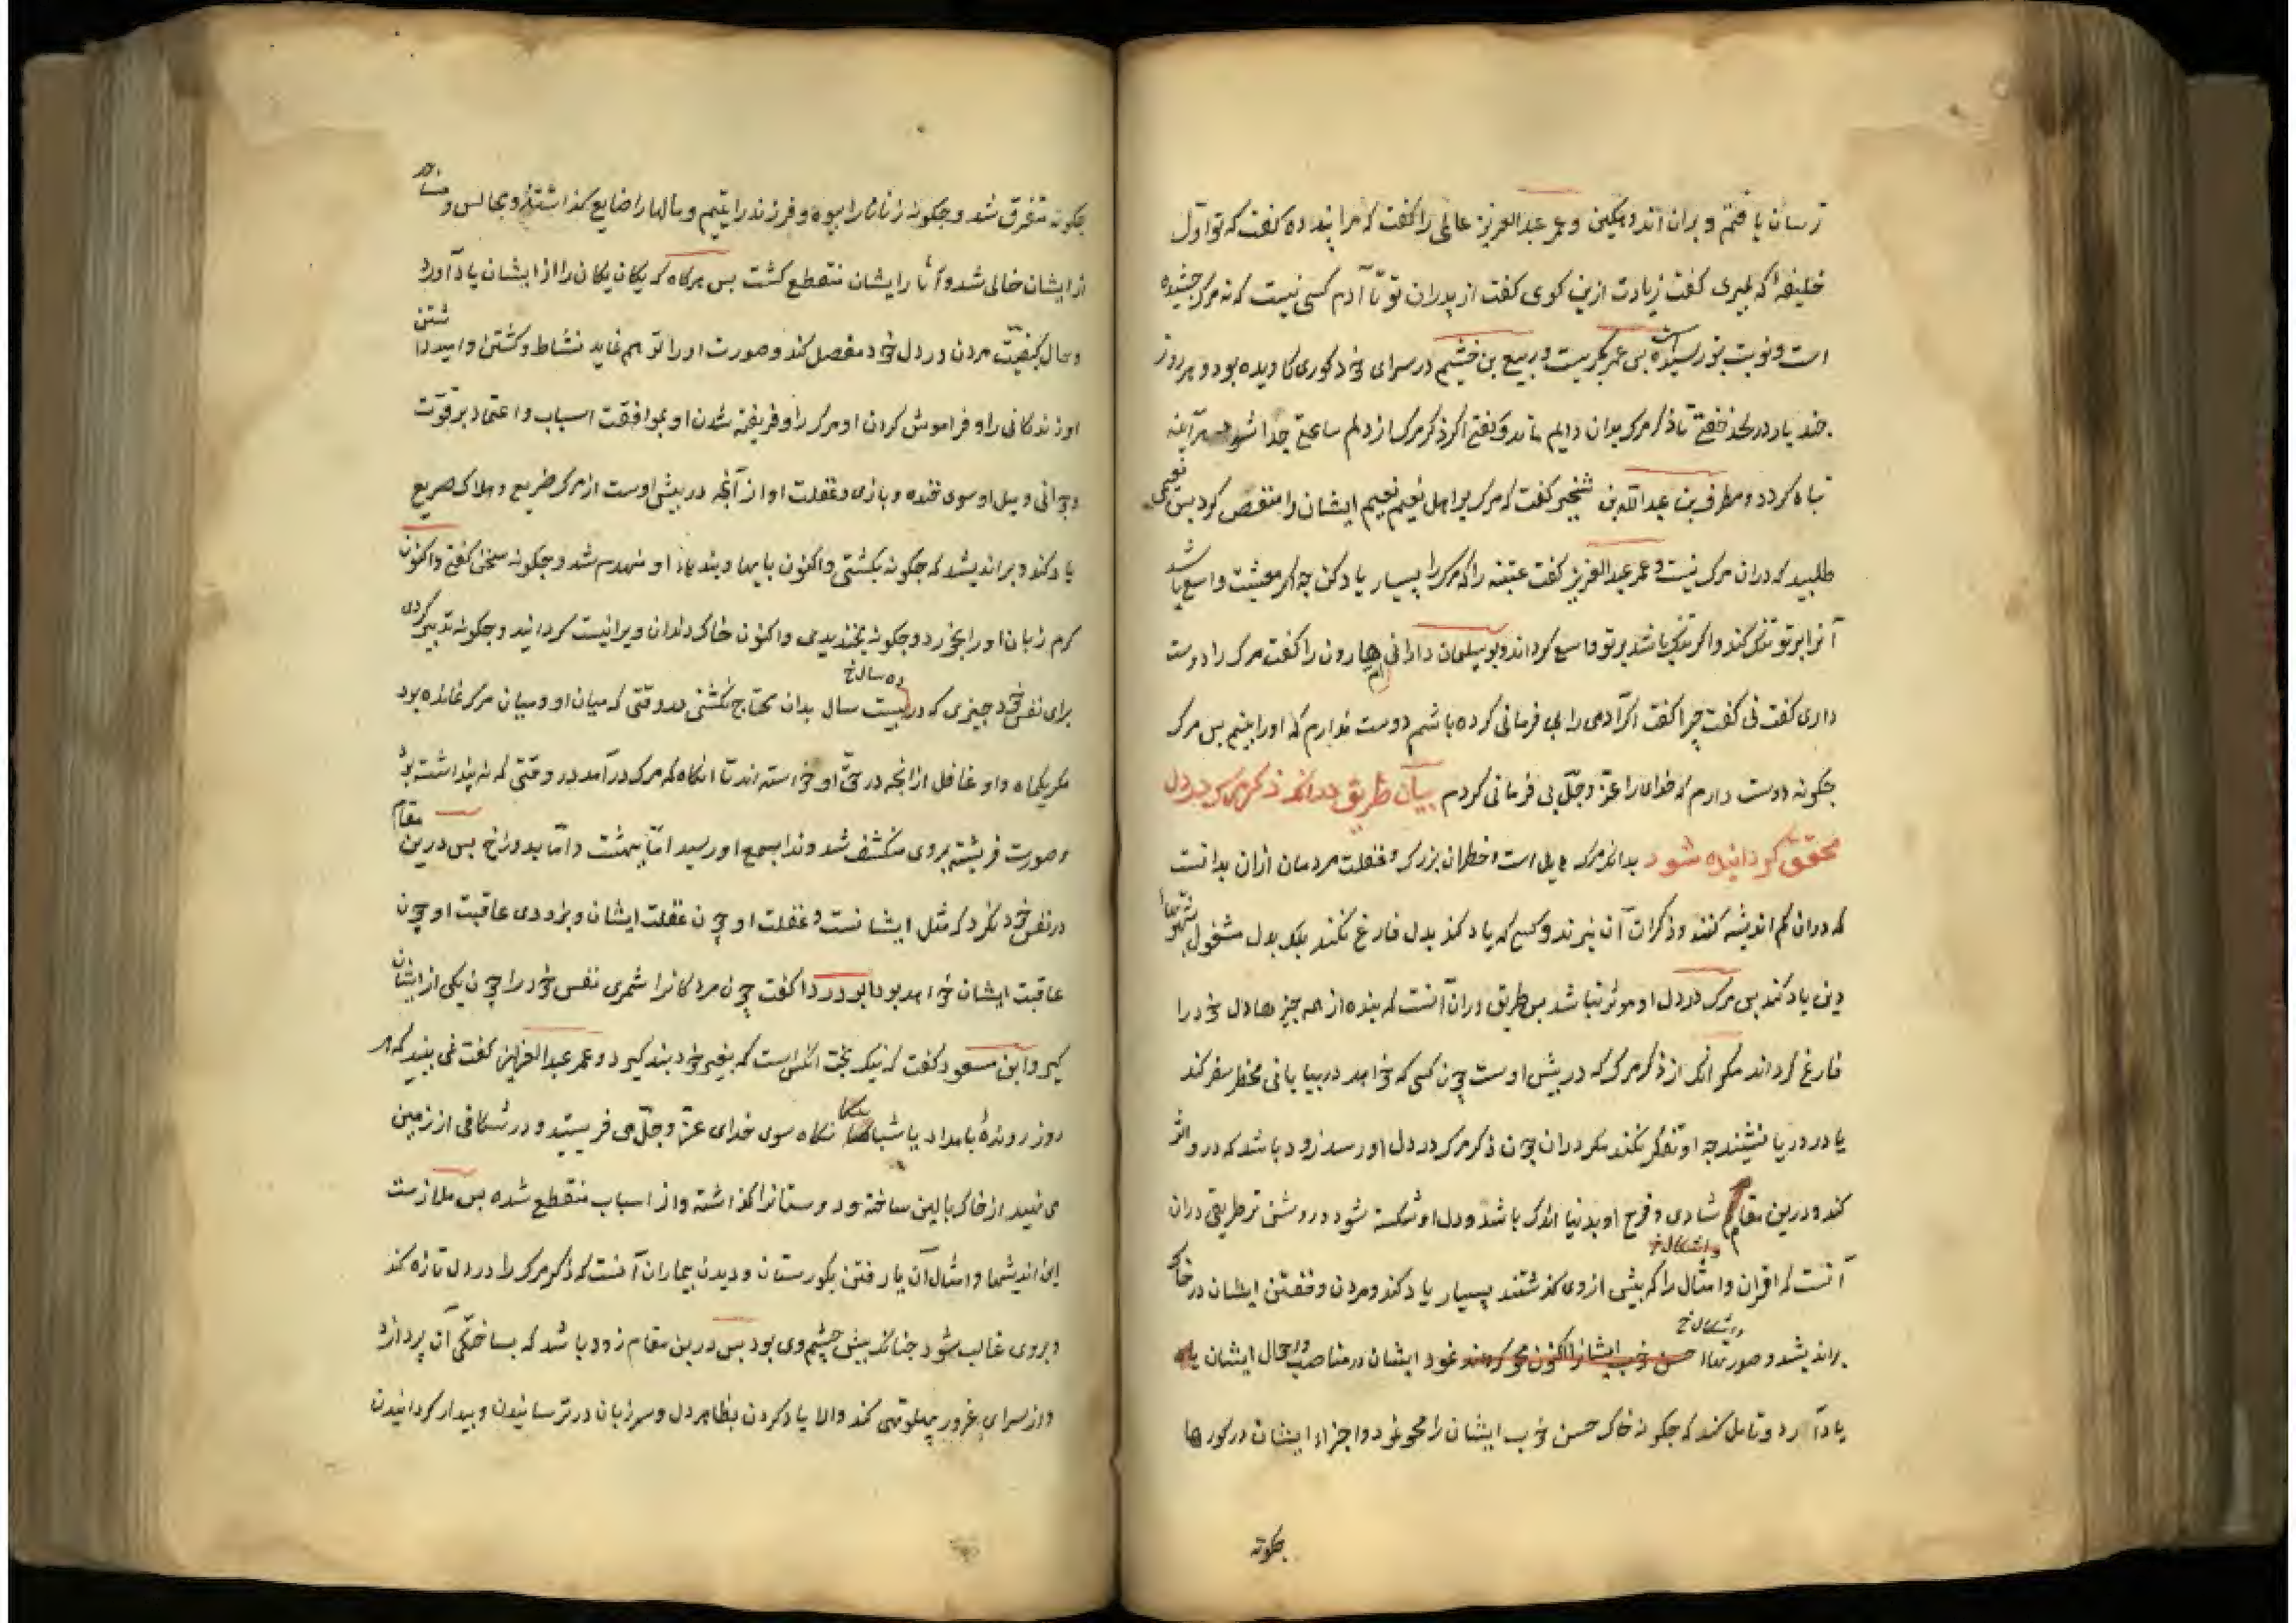 ترسان یافتم و بران اندوهکین و عمر عبدالعزیز عالمی را کفت که مرا پند ده کفت که تو اول
خلیفه که بمیری کفت زیادت ازین کوی کفت از پدران تو تا آدم کسی نیست که نه مرک چشیده
است و نوبت بتو رسیده است بس عمر بکریست و ربیع بن خشیم در سرای خود کوری کاویده بود و هر روز
چند بار در لحد خفتی تا ذکر مرک بران دایم ماند و کفتی اکر ذکر مرک از دلم ساعتی جدا شود هر آینه
تباه کردد و مطرف بن عبدالله بن شخیر کفت که مرک بر اهل نعیم نعیم ایشان را منغص کرد بس نعیمی
طلبید که دران مرک نیست و عمر عبدالعزیز کفت عتبه را که مرک را بسیار یاد کن چه اکر معیشت واسع باشد
آنرا بر تو تنک کند و اکر تنک باشد بر تو واسع کرداند و بو سلیمان دارانی ام هارون را کفت مرک را دوست
داری کفت نی کفت چرا کفت اکر آدمی را بی فرمانی کرده باشم دوست ندارم که او را بینم بس مرک
چکونه دوست دارم که خدای را عز و جل بی فرمانی کردم بیان طریق در آنکه ذکر مرک در دل
محقق کردانیده شود بدانکه مرک هایل است و خطر آن بزرک و غفلت مردمان ازان بدانست
که دران کم اندیشه کنند و ذکر آن نبرند و کسی که یاد کند بدل فارغ نکند بلک بدل مشغول بشهوتها
دنیا یاد کند بس مرک در دل او موثر نباشد بس طریق دران آنست که بنده از همه چیزها دل خود را
فارغ کرداند مکر از ذکر مرک که در پیش اوست چون کسی که خواهد در بیابانی مخطر سفر کند
یا در دریا نشیند چه او تفکر نکند مکر دران چون ذکر مرک در دل او رسد زود باشد که درو اثر
کند و درین مقام شادی و فرح او بدنیا اندک باشد و دل او شکسته شود و روشن تر طریقی دران
واشکال خ
آنست که اقران و امثال را که پیش از وی کذشتند بسیار یاد کند و مردن و خفتن ایشان در خاک
براندیشد و صورتهاء حسن خوب ایشانرا اکنون محو کردند نمود ایشان در مناصب و احوال ایشان یاد
یاد آرد و تامل کند که چکونه خاک حسن خوب ایشان را محو نمود و اجزاء ایشان در کورها
چکونه
چکونه متفرق شد و چکونه زنانرا بیوه و فرزند را یتیم و مالها را ضایع کذاشتند و مجالس و مساجد
از ایشان خالی شد و آثار ایشان منقطع کشت بس هرکاه که یکان یکان را از ایشان یاد آورد
و حال کیفیت مردن در دل خود مفصل کند و صورت او را توهم نماید نشاط و کشتن و امید داشتن
او زندکانی را و فراموش کردن او مرک را و فریفته شدن او بموافقت اسباب و اعتماد بر قوت
و جوانی و میل او سوی خنده و بازی و غفلت او از آنچه در پیش اوست از مرک ضریع و هلاک صریع
یاد کند و براندیشد که چکونه بکشتی و اکنون پایها و بندهاء او منهدم شد و چکونه سخن کفتی و اکنون
کرم زبان او را بخورد و چکونه بخندیدی و اکنون خاک دندان ویرا نیست کردانید و چکونه تدبیر کردی
ده سال خ
برای نفس خود چیزی که در بیست سال بدان محتاج نکشتی در وقتی که میان او و میان مرک نمانده بود
مکر یکماه و او غافل از آنچه در حق او خواسته اند تا انکاه که مرک درآمد در وقتی که نه پنداشته بود
و صورت فریشته بر وی منکشف شد و ندا بسمع او رسید اما ببهشت و اما بدوزخ بس درین مقام
در نفس خود نکرد که مثل ایشانست و غفلت او چون غفلت ایشان و بزودی عاقبت او چون
عاقبت ایشان خواهد بود ابو دردا کفت چون مردکانرا شمری نفس خود را چون یکی از ایشان
کیر و ابن مسعود کفت که نیکبخت انکس است که بغیر خود پند کیرد و عمر عبدالعزیز کفت نمی بینید که هر
روز رونده بامداد یا شبانکاه سوی خدای عز و جل می فرستید و در شکافی از زمین
می نهید از خاک بالین ساخته و دوستانرا کذاشته و از اسباب منقطع شده بس ملازمت
این اندیشها و امثال آن با رفتن بکورستان و دیدن بیماران آنست که ذکر مرک را در دل تازه کند
و بر وی غالب شود چنانکه پیش چشم وی بود بس درین مقام زود باشد که بساختکی آن پردازد
و از سرای غرور پهلو تهی کند والا یاد کردن بظاهر دل و سر زبان در ترسانیدن و بیدار کردانیدن